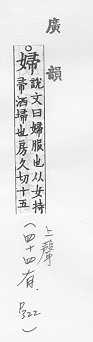 廣韻
婦 說文曰婦服也从女持
帚洒埽也房久切十五
上聲
(四十四有, P322)